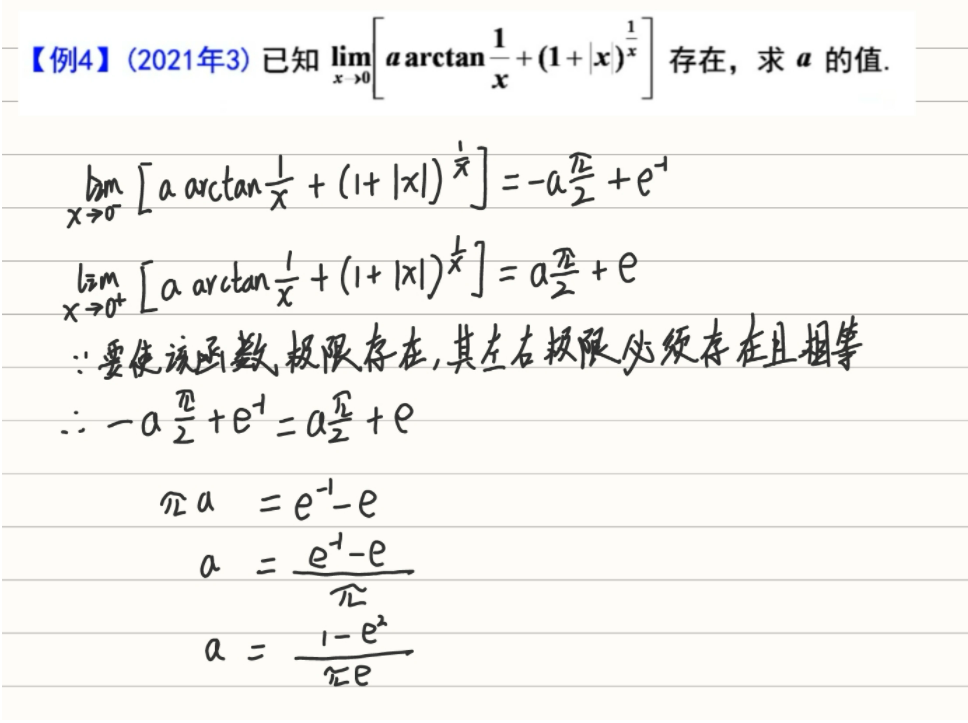 【例4】(2021年3) 已知 lim x→0 [a arctan 1/x + (1+|x|)^(1/x)] 存在，求 a 的值.
lim x→0⁻ [a arctan 1/x + (1+|x|)^(1/x)] = -a π/2 + e⁻¹
lim x→0⁺ [a arctan 1/x + (1+|x|)^(1/x)] = a π/2 + e
∵要使该函数极限存在,其左右极限必须存在且相等
∴ -a π/2 + e⁻¹ = a π/2 + e
πa = e⁻¹ - e
a = (e⁻¹ - e)/π
a = (1 - e²)/(πe)